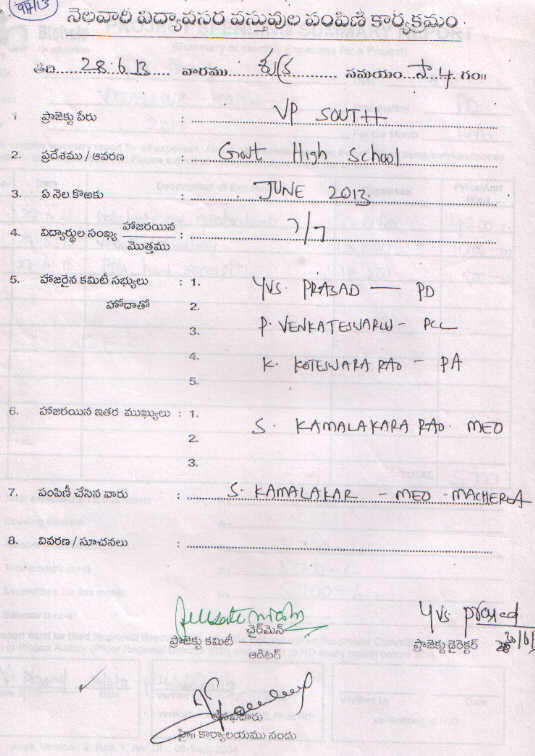 నెలవారీ విద్యావసర వస్తువుల పంపిణి కార్యక్రమం
తేది 28.6.13 వారము శుక్ర సమయం. సా. 4. గం॥
1 ప్రాజెక్టు పేరు : VP SOUTH
2. ప్రదేశము / ఆవరణ : Govt High School
3. ఏ నెల కొఱకు : JUNE 2013
4. విద్యార్థుల సంఖ్య హాజరయిన / మొత్తము : 7/7
5. హాజరైన కమిటీ సభ్యులు : 1. YVS. PRASAD — PD
హోదాతో 2.
3. P. VENKATESWARLU - PCC
4. K. KOTESWARA RAO - PA
5.
6. హాజరయిన ఇతర ముఖ్యులు : 1. S. KAMALAKARA RAO. MEO
2.
3.
7. పంపిణీ చేసిన వారు : S. KAMALAKAR - MEO - MACHERLA
8. వివరణ / సూచనలు :
YVS prasad
ప్రాజెక్టు కమిటీ చైర్‌మెన్ / ఆడిటర్ ప్రాజెక్టు డైరెక్టర్
కార్యాలయము నందు